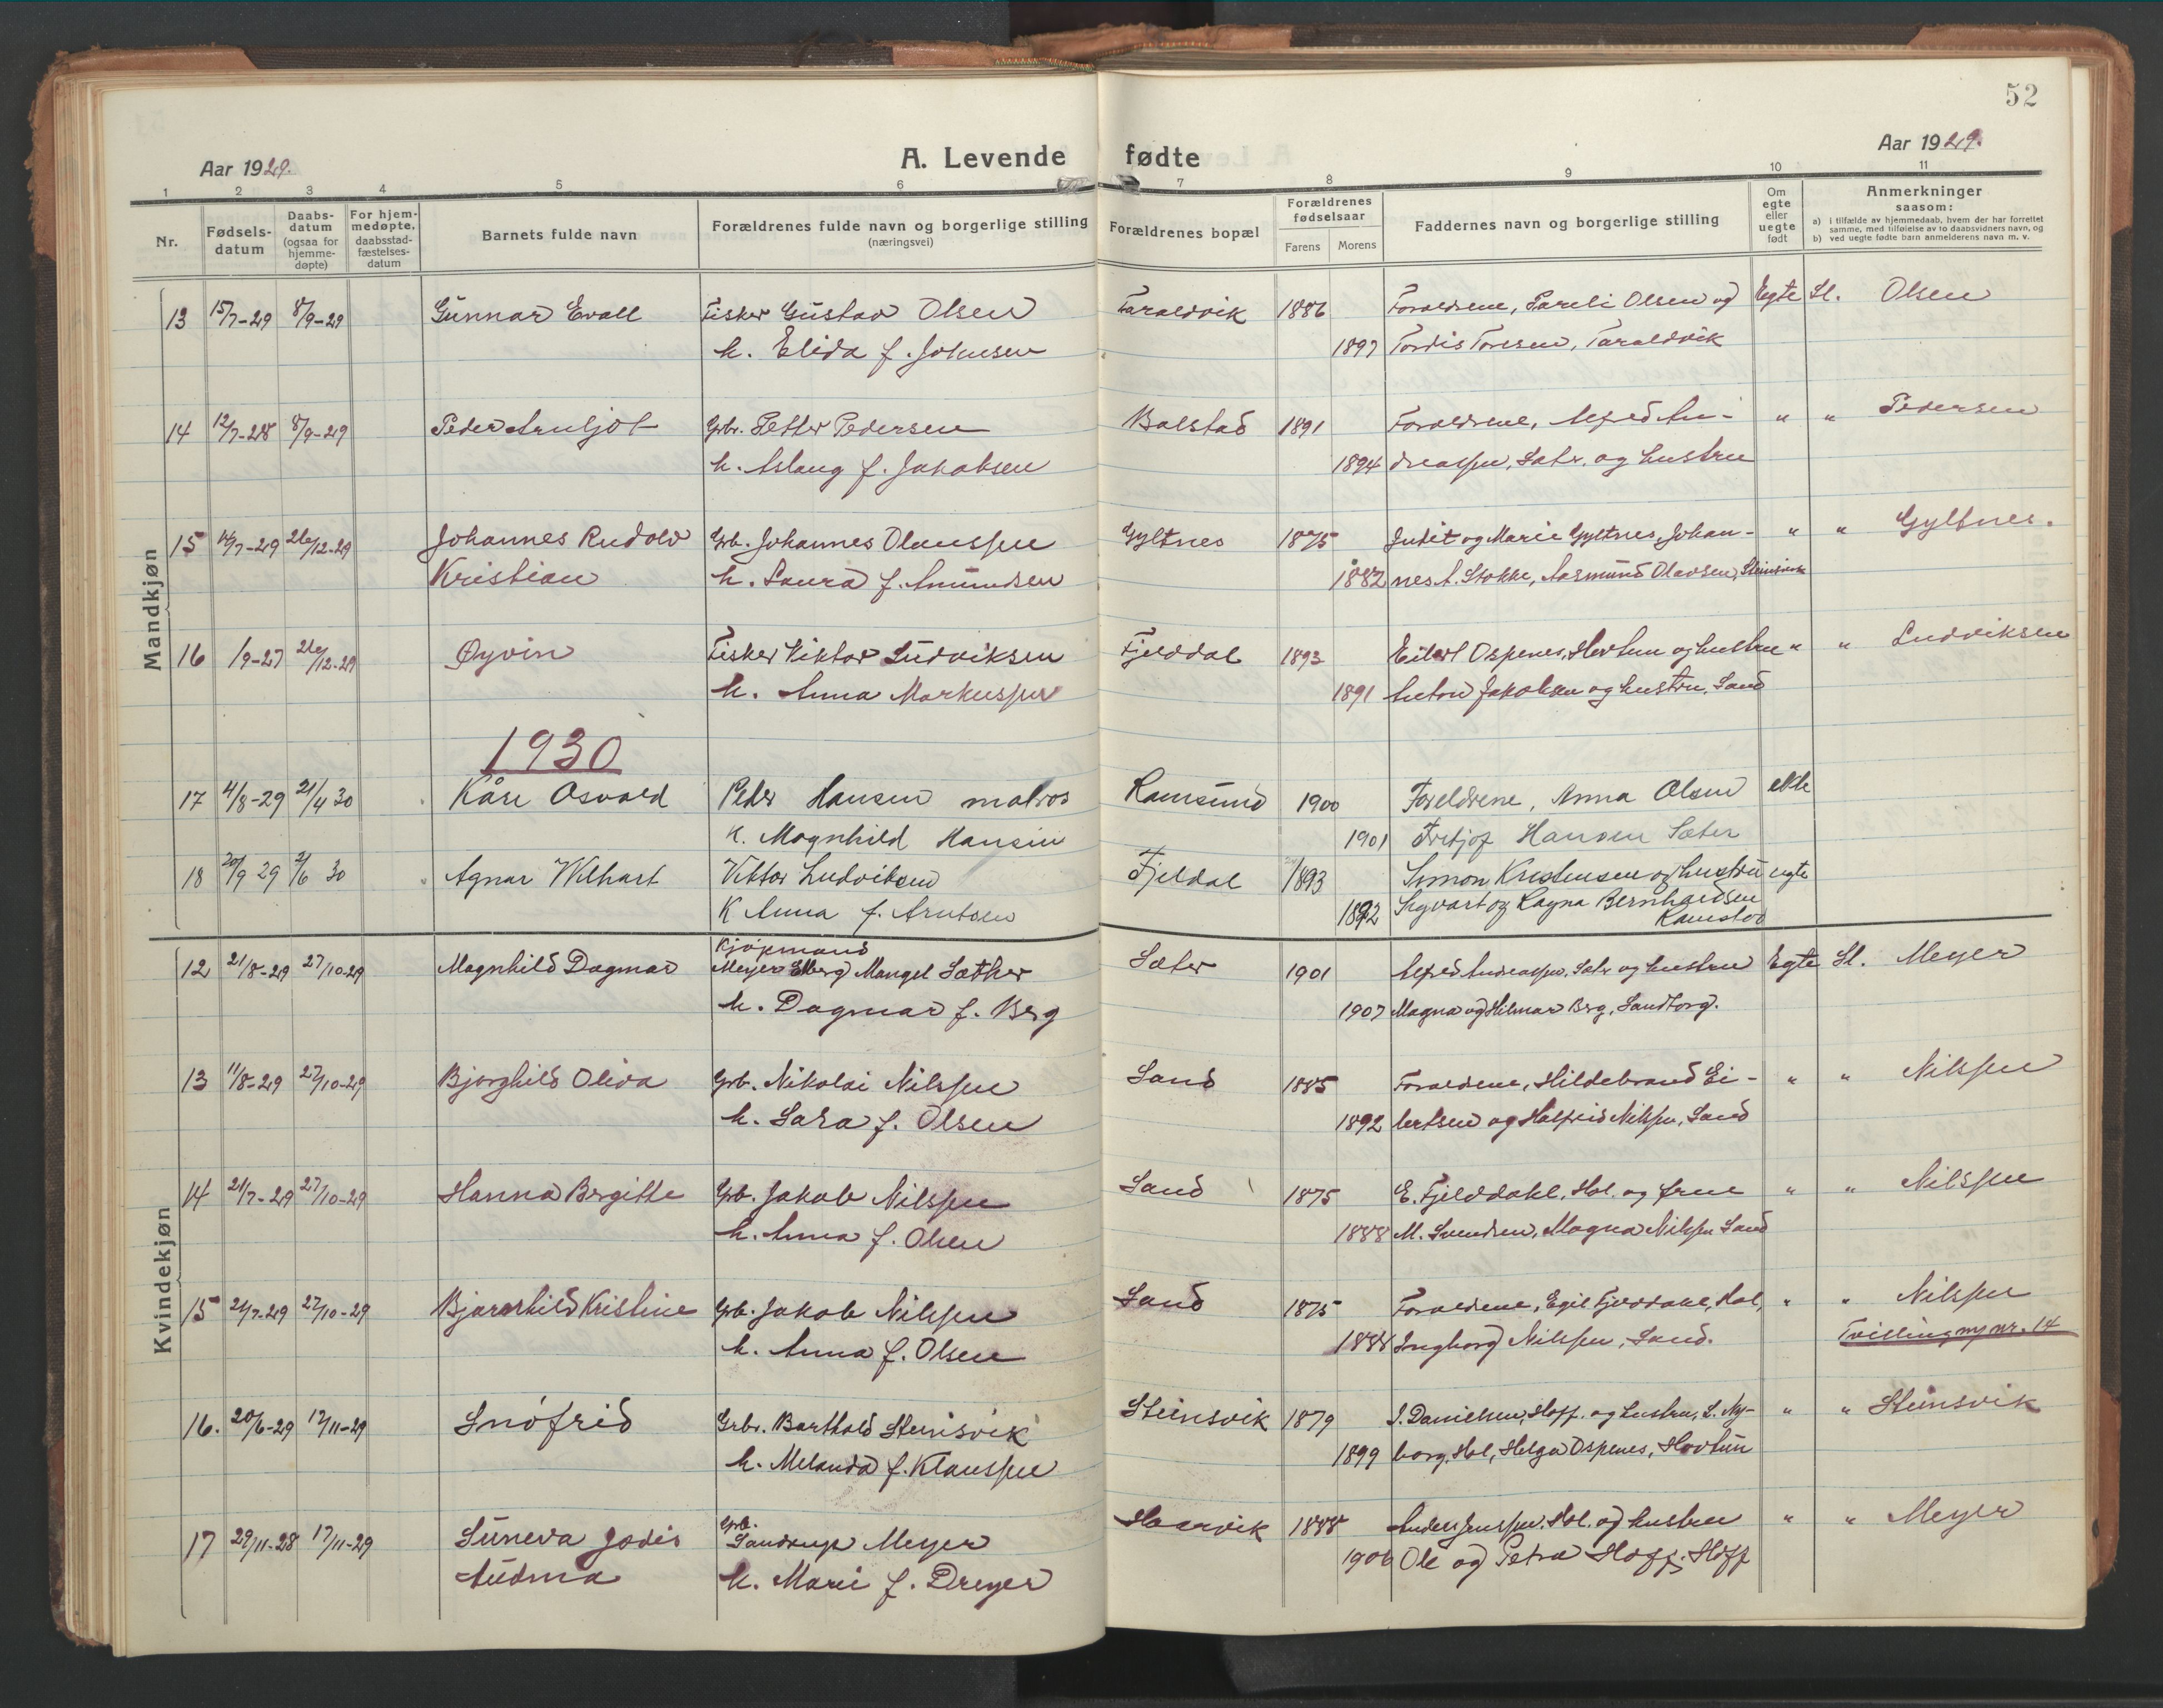 52
Aar 1929.
A. Levende fødte
Aar 1929.
1 2 3 4 5 6 7 8 9 10 11
Nr.
Fødsels-
datum
Daabs-
datum
(ogsaa for
hjemme-
døpte)
For hjem-
medøpte,
daabsstad-
fæstelses-
datum
Barnets fulde navn
Forældrenes fulde navn og borgerlige stilling
(næringsvei)
Forældrenes bopæl
Forældrenes
fødselsaar
Farens Morens
Faddernes navn og borgerlige stilling
Om
egte
eller
uegte
født
Anmerkninger
saasom:
a) i tilfælde av hjemmedaab, hvem der har forrettet
samme, med tilføielse av to daabsvidners navn, og
b) ved uegte fødte barn anmelderens navn m. v.
Mandkjøn
13 15/7-29 8/9-29 Gunnar Evall Fisker Gustav Olsen Taraldvik 1886 Forældrene, Pareli Olsen og Egte Sl. Olsen
h. Elida f. Johnsen 1897 Tordis Toresen, Taraldvik
14 12/7-28 8/9-29 Peder Arnljot Grb. Petter Pedersen Balstad 1891 Forældrene, Alfred An- " " Pedersen
h. Aslaug f. Jakobsen 1894 dreassen, Sætr. og hustru
15 14/7-29 26/12-29 Johannes Rudolv Grb. Johannes Olaussen Gyltnes 1875 Judit og Marie Gyltnes, Johan- " " Gyltnes.
Kristian h. Laura f. Amundsen 1882 nes A. Stokke, Aasmund Olavsen, Steinsvik
16 1/9-27 26/12-29 Øyvin Fisker Viktor Ludviksen Fjelddal 1893 Eilert Ospenes, Hovtun og hustru " " Ludviksen
h. Anna Markussen 1891 Anton Jakobsen og hustru, Sand
1930
17 4/8-29 21/4 30 Kåre Osvald Peder Hansen matros Ramsund 1900 Foreldrene, Anna Olsen ekte
K. Magnhild Hansen 1901 Fritjof Hansen Sæter
18 20/9 29 2/6 30 Agnar Wilhart Viktor Ludviksen Fjeldal 1893 Simon Kristensen og hustru egte
K Anna f. Arntsen 1892 Sigvart og Ragna Bernhardsen
Ramstad
Kvindekjøn
Kjøpmand
12 21/8-29 27/10-29 Magnhild Dagmar Meyer Elberg Mangel Sæther Sæter 1901 Alfred Andreassen, Sætr og hustru Egte Sl. Meyer
h. Dagmar f. Berg 1907 Magna og Hilmar Berg, Sandtorg.
13 11/8-29 27/10-29 Bjørghild Oliva Grb. Nikolai Nilssen Sand 1885 Forældrene, Hildebrand Ei- " " Nilssen
h. Sara f. Olsen 1892 lertsen og Halfrid Nilssen, Sand
14 21/7-29 27/10-29 Hanna Bergitte Grb. Jakob Nilssen Sand 1875 E. Fjelddahl, Hol. og frue " " Nilssen
h. Anna f. Olsen 1888 M. Svendsen, Magna Nilssen Sand
15 21/7-29 27/10-29 Bjarnhild Kristine Grb. Jakob Nilssen Sand 1875 Forældrene, Egil Fjelddahl, Hol, " " Nilssen
h. Anna f. Olsen 1888 Ingborg Nilssen, Sand. Tvilling m nr. 14
16. 20/6-29 17/11-29 Snøfrid Grbr. Barthold Steinsvik Steinsvik 1879 J. Danielsen, Hoff. og hustru, L. Ny- " " Steinsvik
h. Melanda f. Klaussen 1899 borg, Hol, Helga Ospenes, Hovtun
17 29/11-28 17/11-29 Suneva Jodis Grb. Tandrup Meyer Haarvik 1888 Anders Jenssen, Hol. og hustru " " Meyer
Audma h. Marie f. Dreyer 1906 Ole og Petra Hoff, Hoff